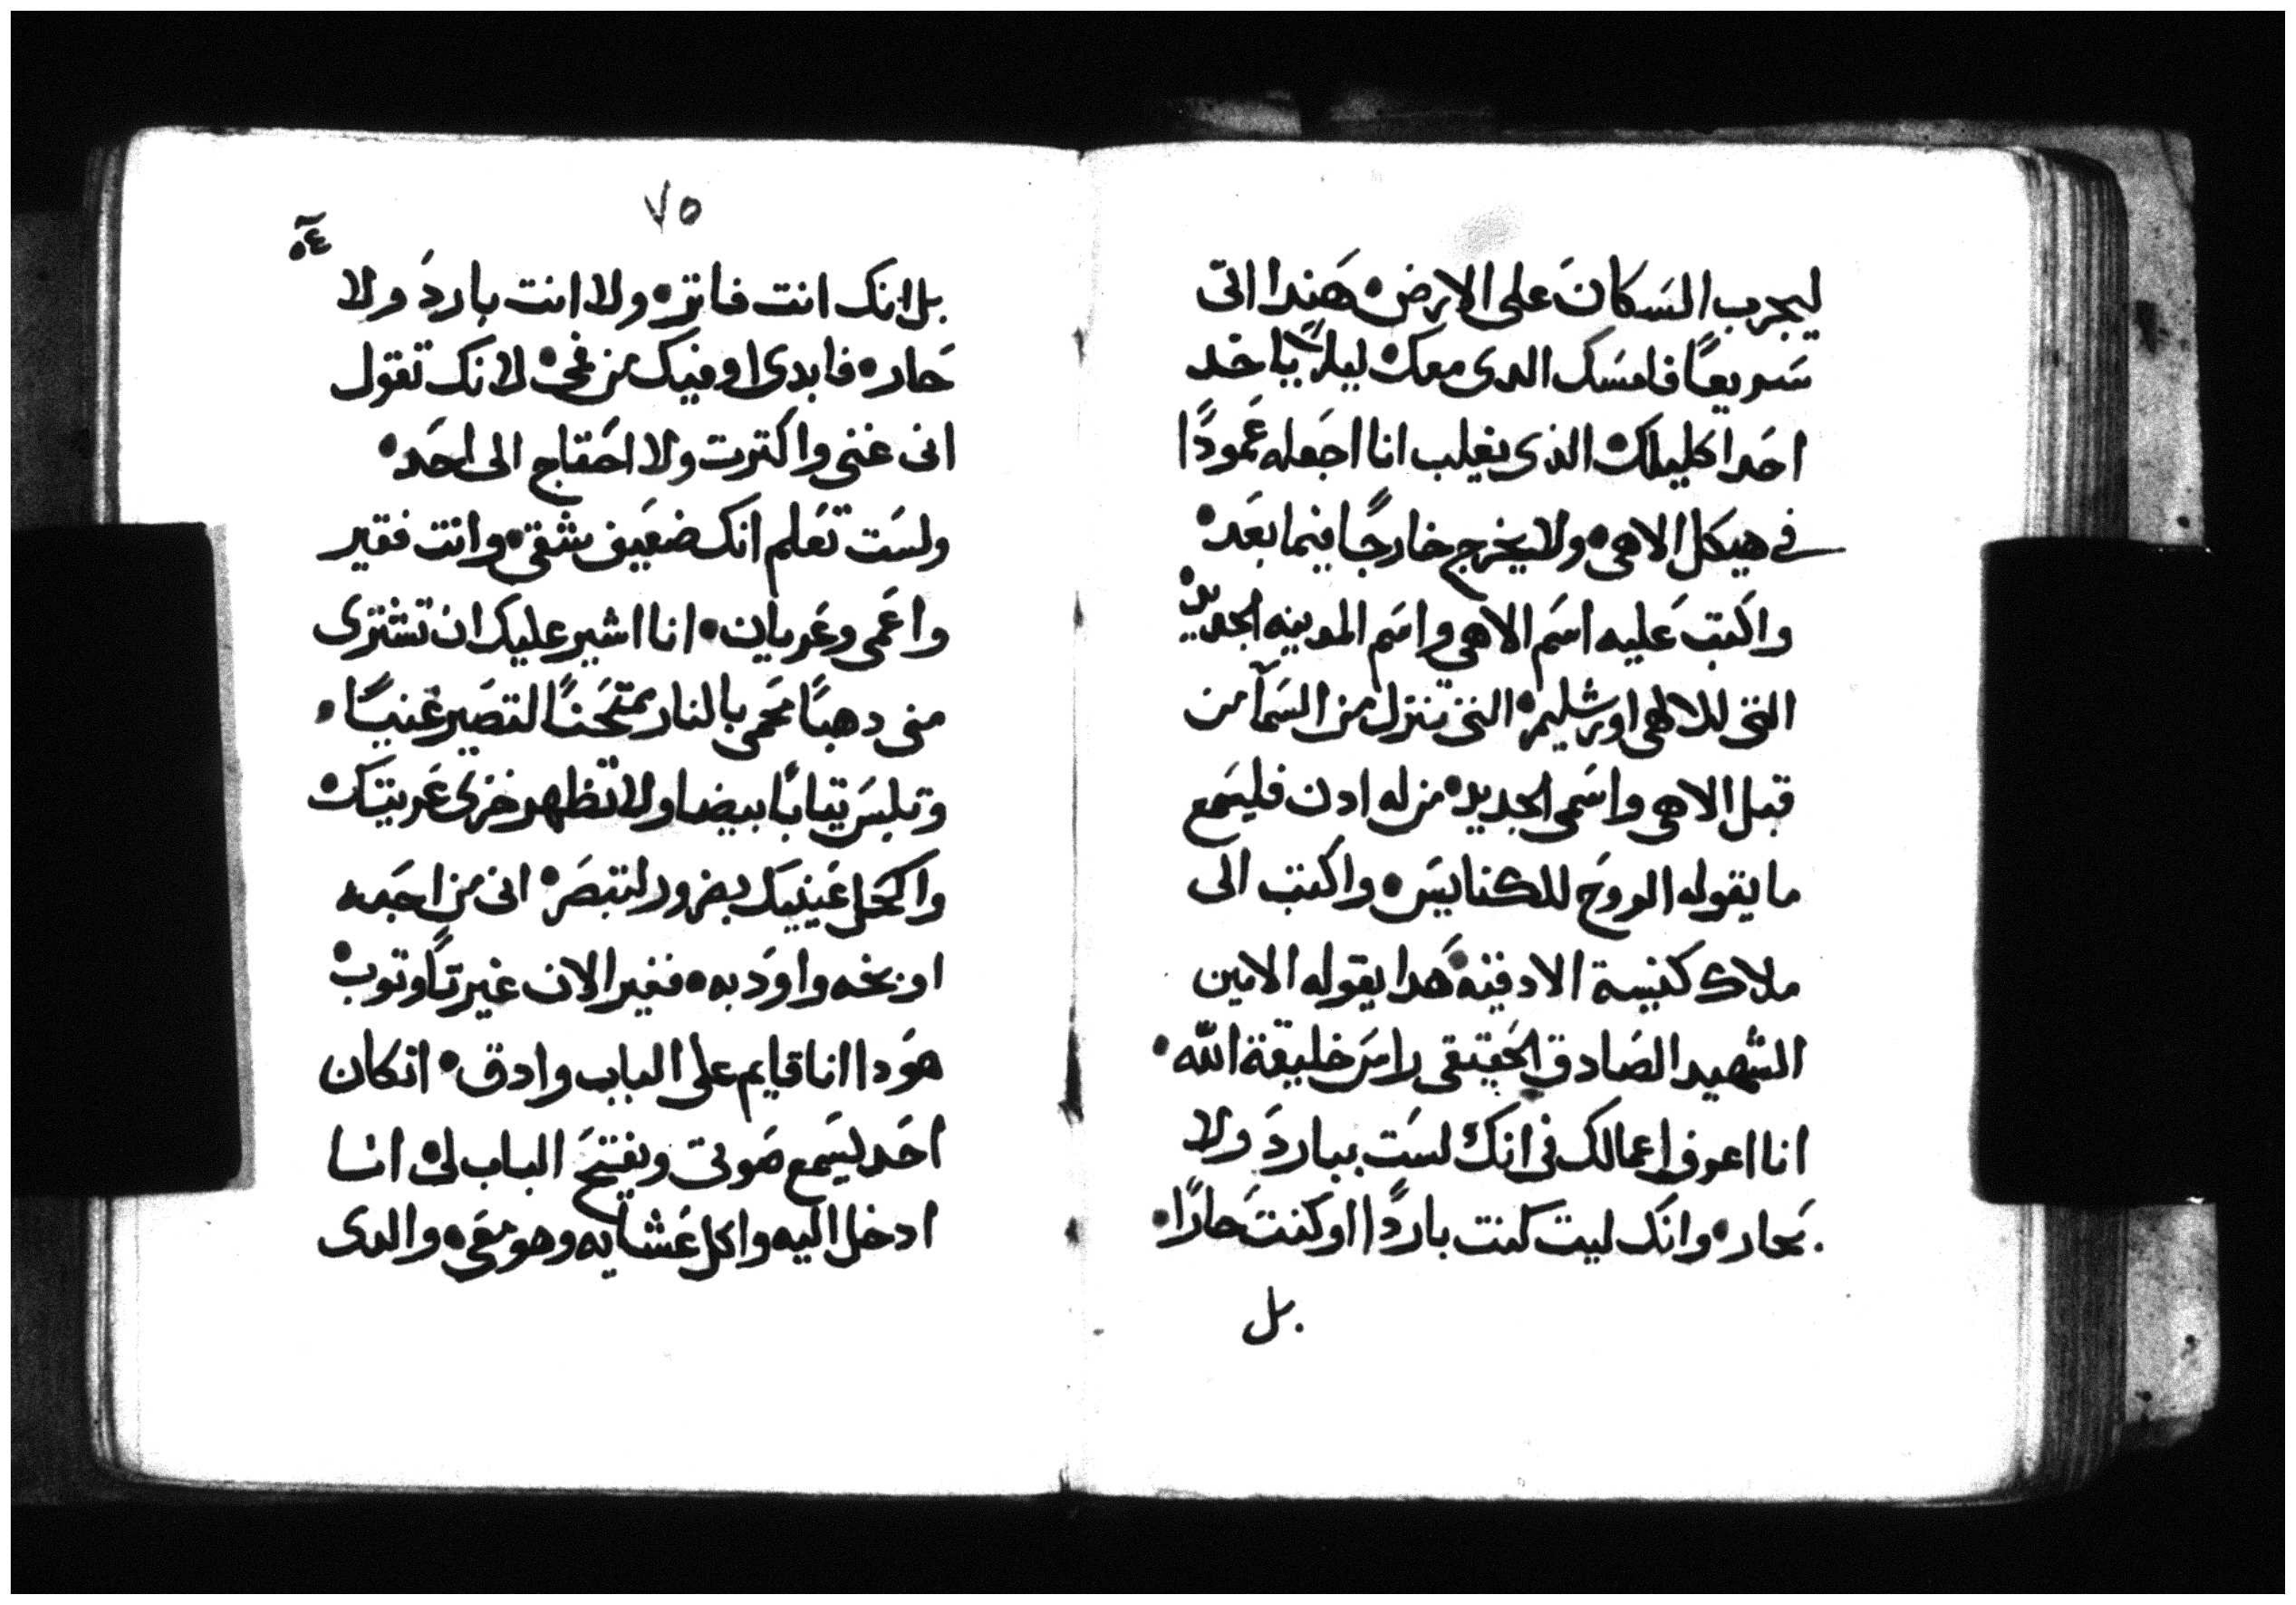 ليجرب السكان على الارض هندا اتى
سريعًا فامسك الدى معك ليلا ياخد
احدا كليلك الذى يغلب انا اجعله عمودًا
فى هيكل الاهى ولا يخرج خارجًا فيما بعد
واكتب عليه اسم الاهى واسم المدينه الجديده
التى للالهى اورشليم التى تنزل من السمآ من
قبل الاهى واسمى الجديد من له ادن فليسمع
ما يقوله الروح للكنايس واكتب الى
ملاك كنيسة الادقيه هدا يقوله الامين
الشهيد الصادق الحقيقى راس خليقة الله
انا اعرف اعمالك فى انك لست ببارد ولا
بحار وانك ليت كنت باردًا او كنت حارًا
بل
٧٥
٥٤
بل انك انت فاتر ولا انت بارد ولا
حار فابدى اوفيك من فمى لانك تقول
انى غنى واكترت ولا احتاج الى احد
ولست تعلم انك ضعيف شقى وانت فقير
واعمى وعريان انا اشير عليك ان تشترى
منى دهبًا محمى بالنار ممتحنًا لتصير غنيًا
وتلبس تيابًا بيضا ولا تظهر خزى عريتك
واكحل عينيك بضرور لتبصر انى من احبه
اوبخه واودبه فغير الان غيرتًا وتوب
هودا انا قايم على الباب وادق انكان
احد يسمع صوتى ويفتح الباب لى انا
ادخل اليه واكل عشايه وهو معى والدى